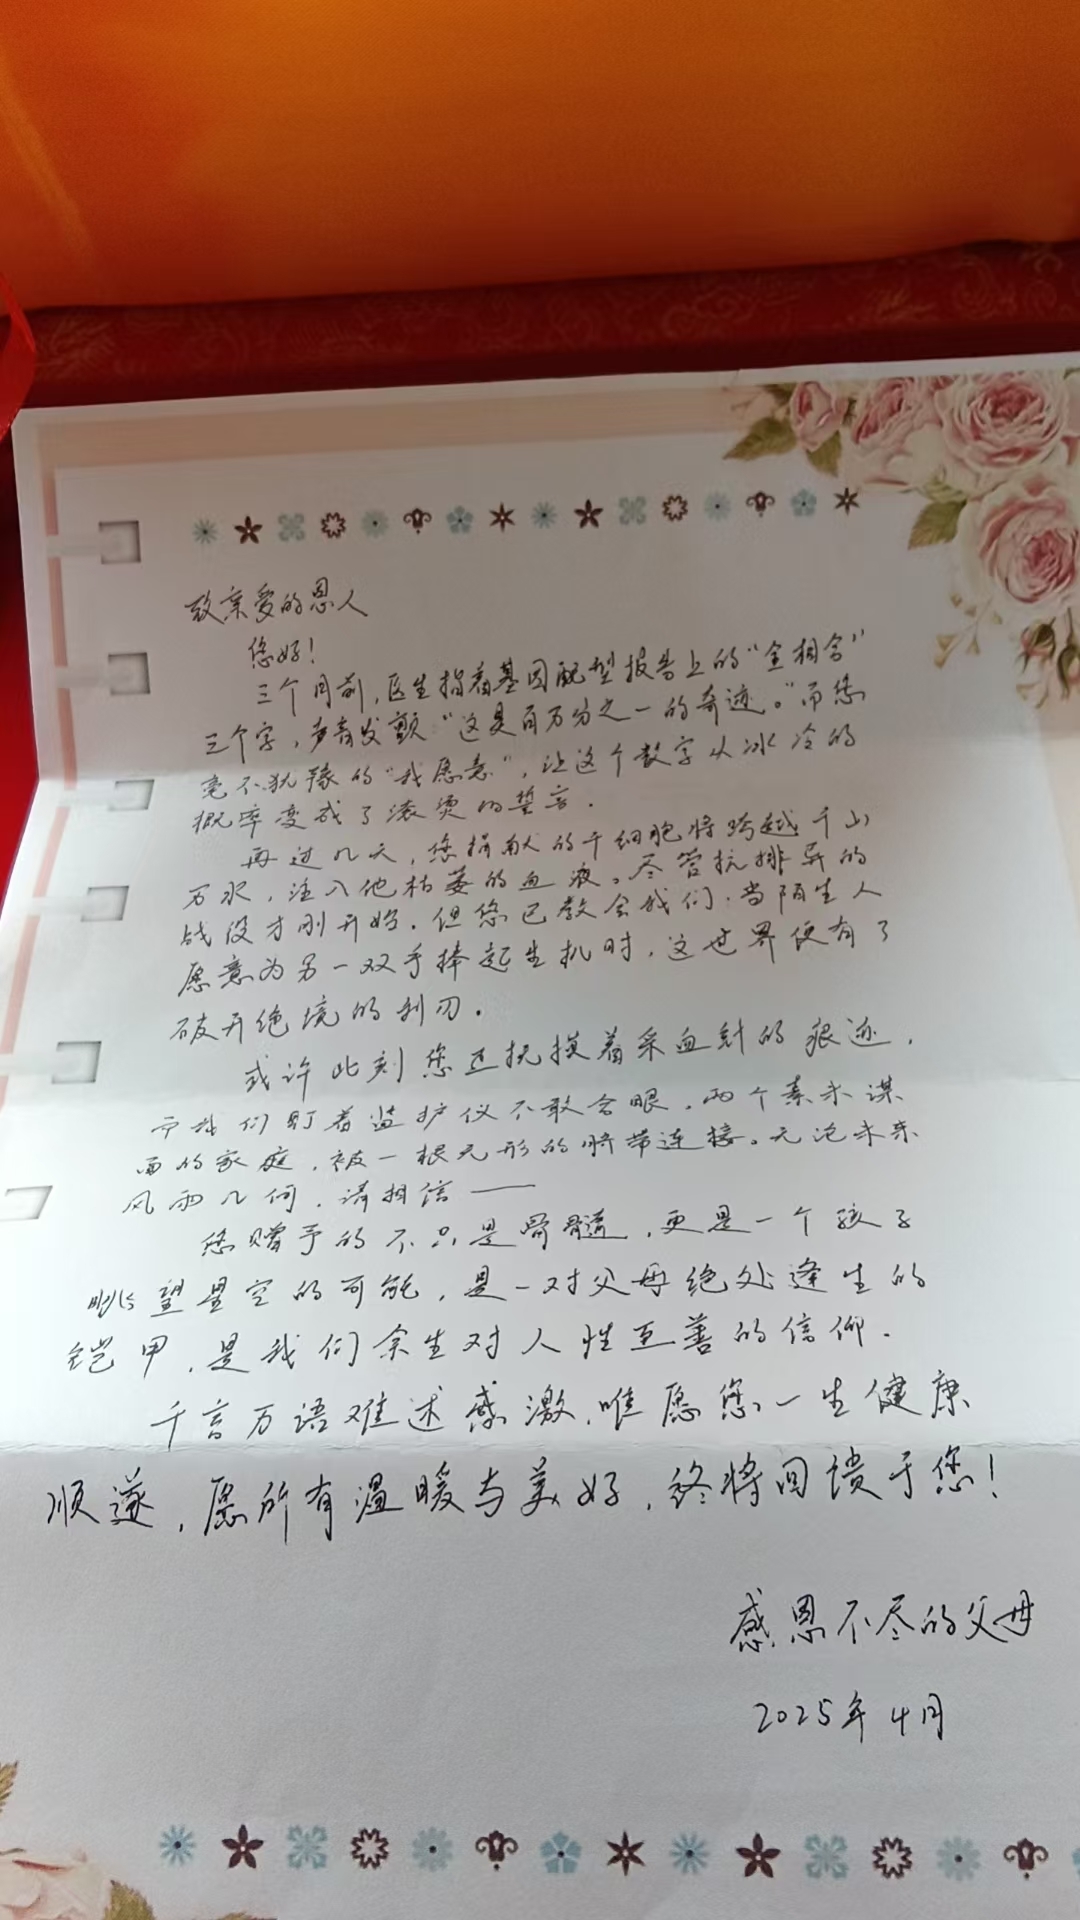 致亲爱的恩人
您好!
三个月前,医生指着基因配型报告上的"全相合"
三个字,声音发颤"这是百万分之一的奇迹。"而您
毫不犹豫的"我愿意",让这个数字从冰冷的
概率变成了滚烫的誓言.
再过几天,您捐献的干细胞将跨越千山
万水,注入他枯萎的血液。尽管抗排异的
战役才刚开始.但您已教会我们.当陌生人
愿意为另一双手捧起生机时,这世界便有了
破开绝境的利刃.
或许此刻您还抚摸着采血针的痕迹,
而我们盯着监护仪不敢合眼.两个素未谋
面的家庭,被一根无形的脐带连接。无论未来
风雨几何,请相信——
您赠予的不只是骨髓,更是一个孩子
眺望星空的可能,是一对父母绝处逢生的
铠甲,是我们余生对人性至善的信仰.
千言万语难述感激,唯愿您一生健康
顺遂,愿所有温暖与美好,终将回馈于您!
感恩不尽的父母
2025年4月